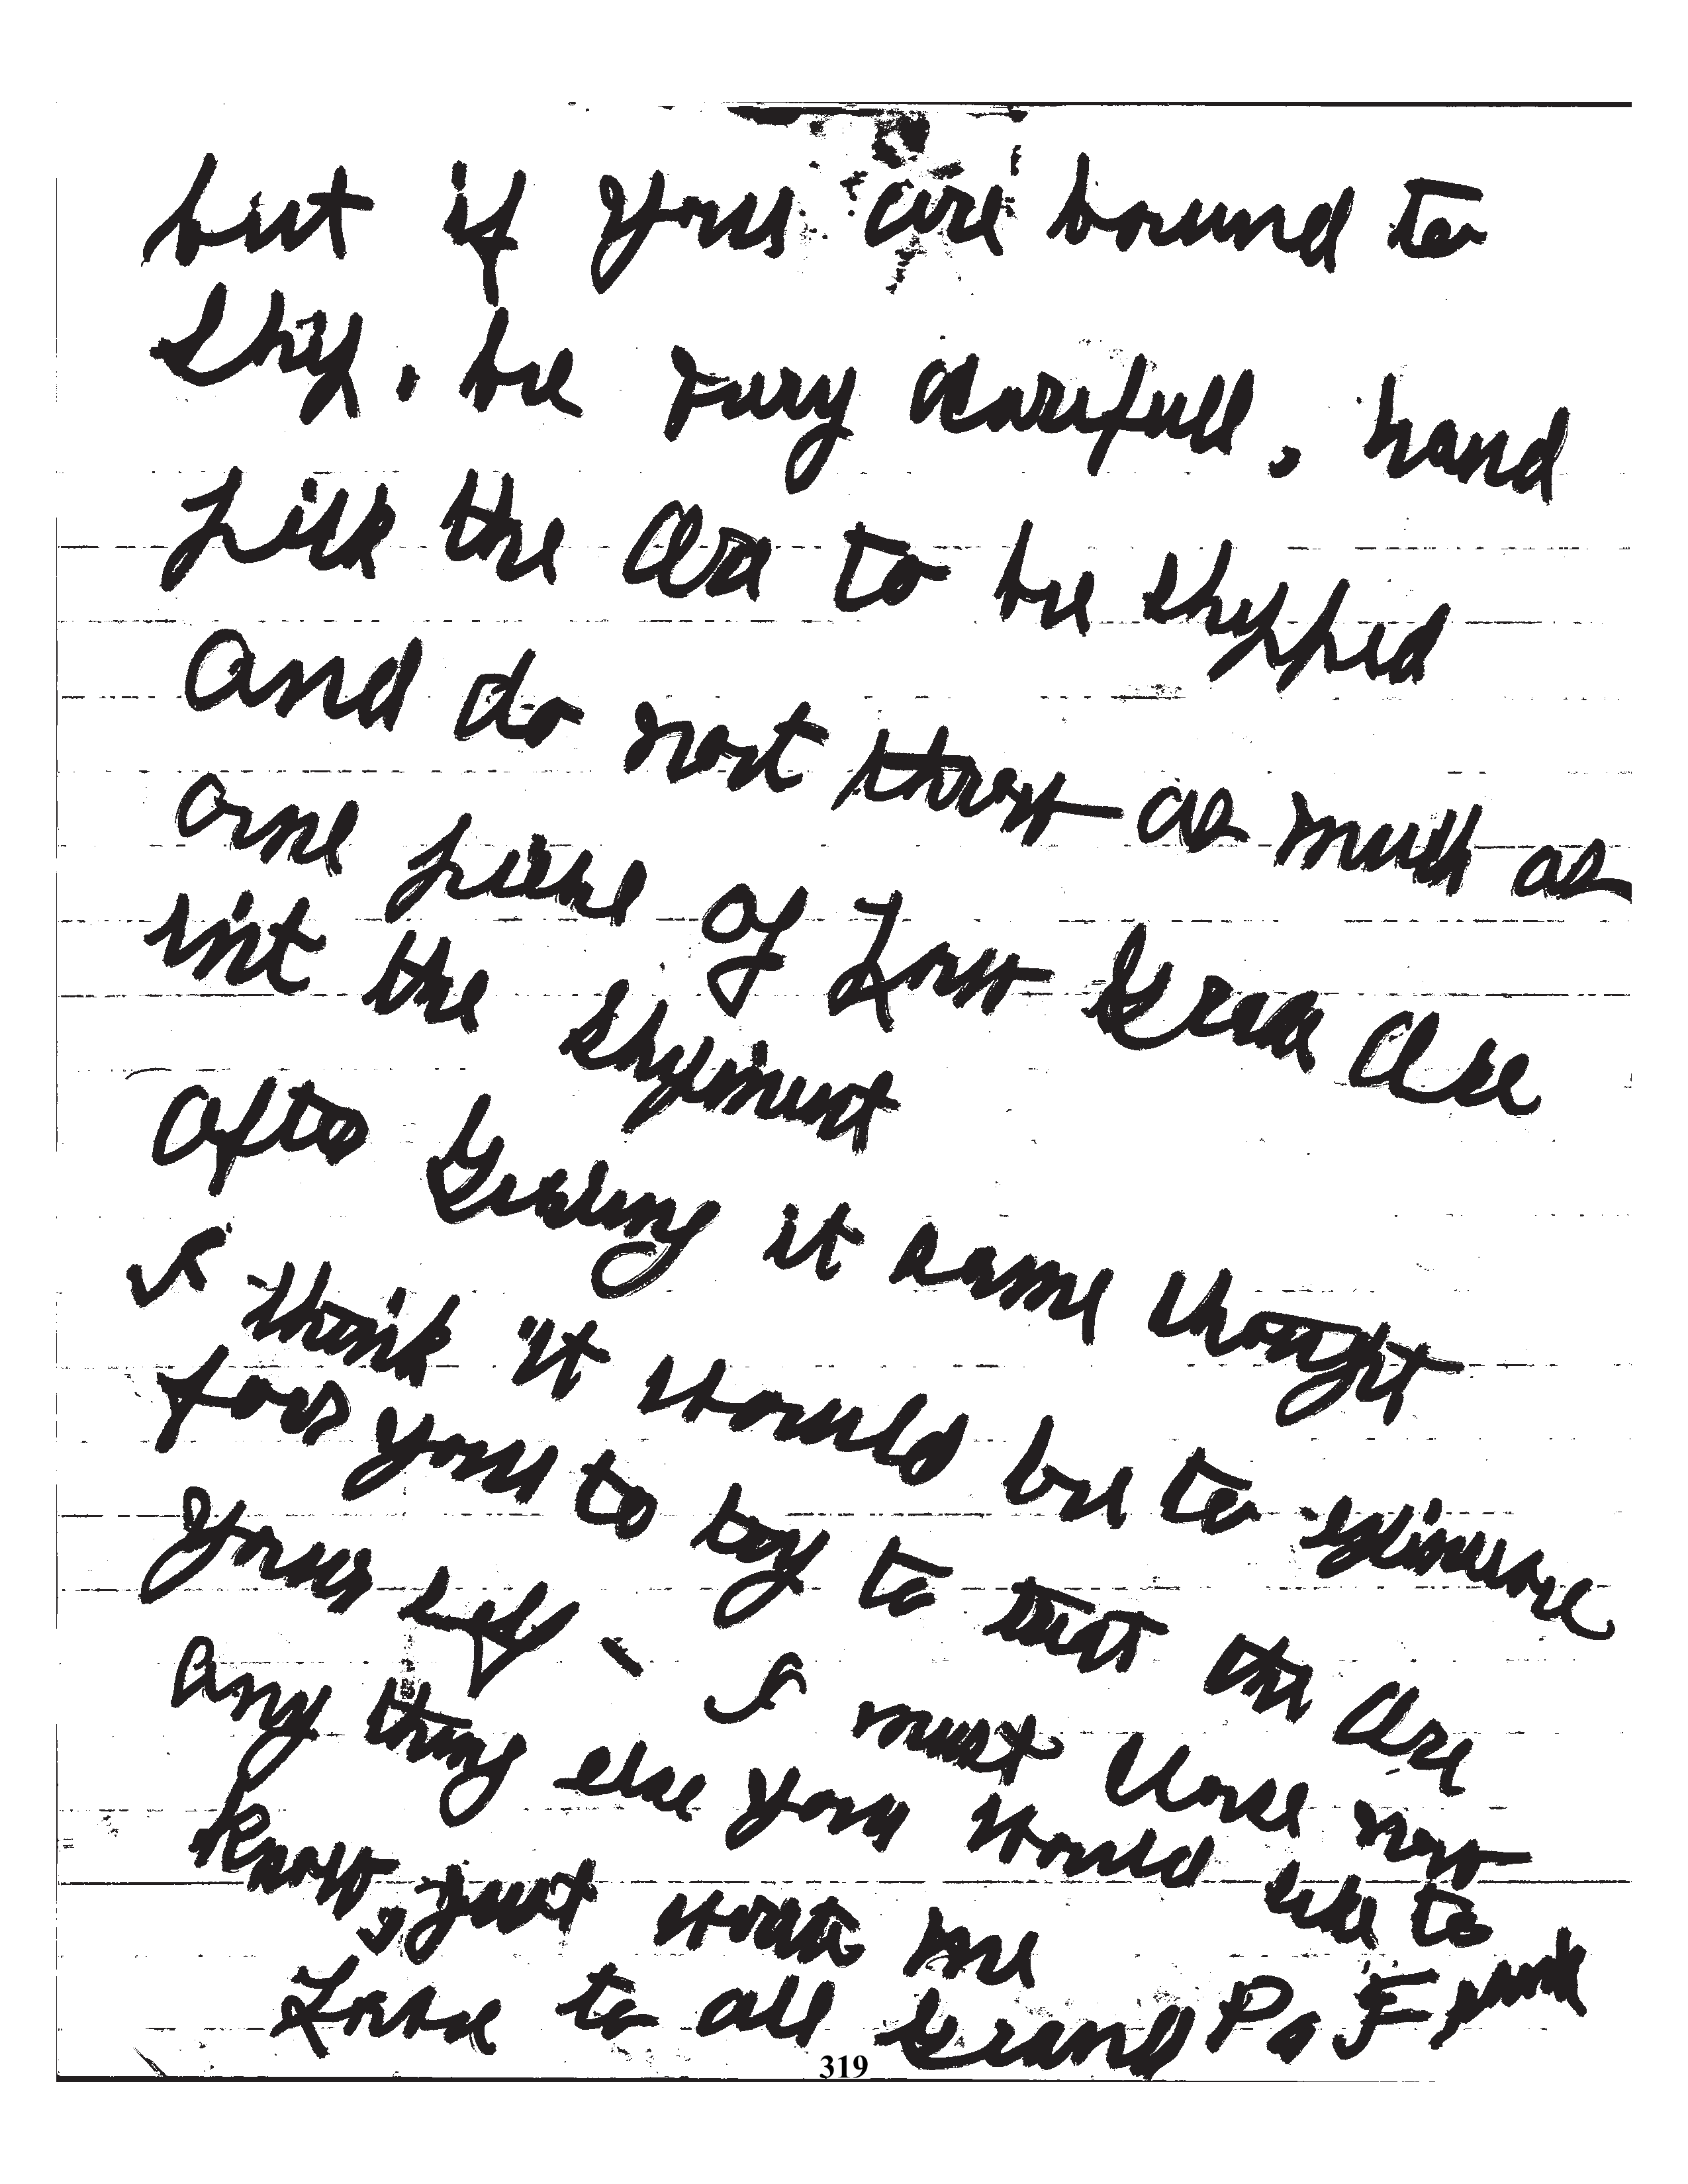 but if you are bound to
ship, be vury carefull, hand
pick the ore to be shipped
and do not throw as much as
one piece of Low Grade Ore
int the shipment
after giving it some thought
I think it would be to expincive
for you to try to treat the ore
your self - I must close now
any thing else you would like to
know, just write me
Love to all Grand Pa Frank
319